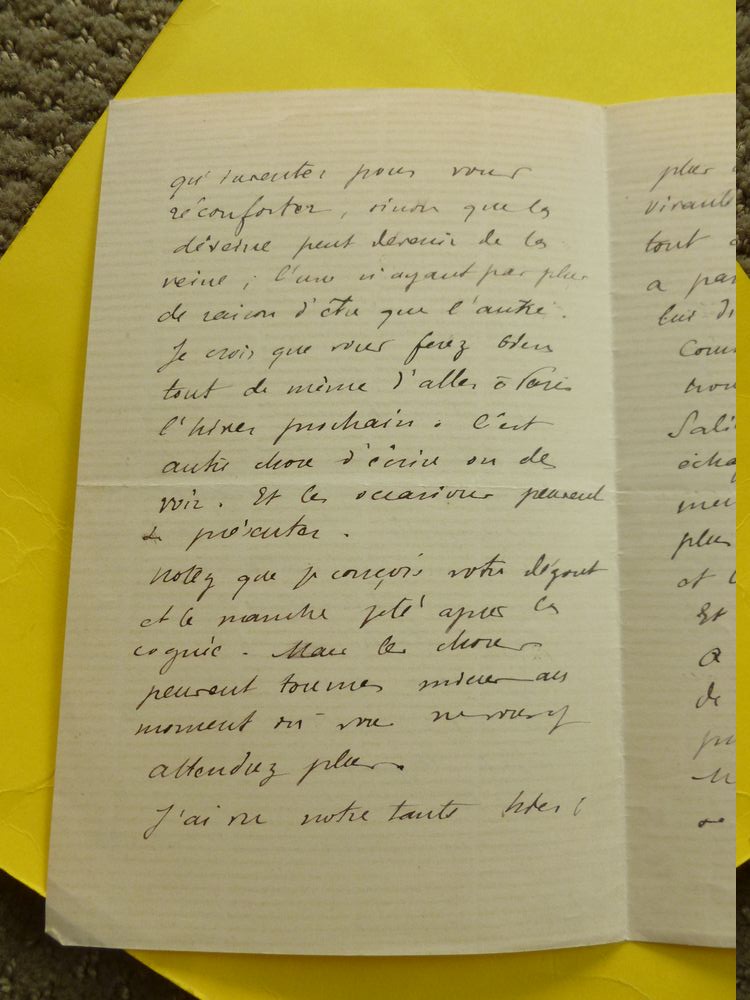 qu'inventer pour vous
réconforter, sinon que la
déveine peut devenir de la
veine ; l'une n'ayant pas plus
de raison d'être que l'autre.
Je crois que vous ferez bien
tout de même d'aller à Paris
l'hiver prochain. C'est
autre chose d'écrire ou de
voir. Et les occasions peuvent
se présenter.
Notez que je conçois votre dégout
et le manche jeté après la
cognée. Mais les choses
peuvent tourner mieux au
moment où vous ne vous y
attendez plus.
J'ai vu notre tante hier
plus
vivants
tout
a pas
lui
Com
Et
de